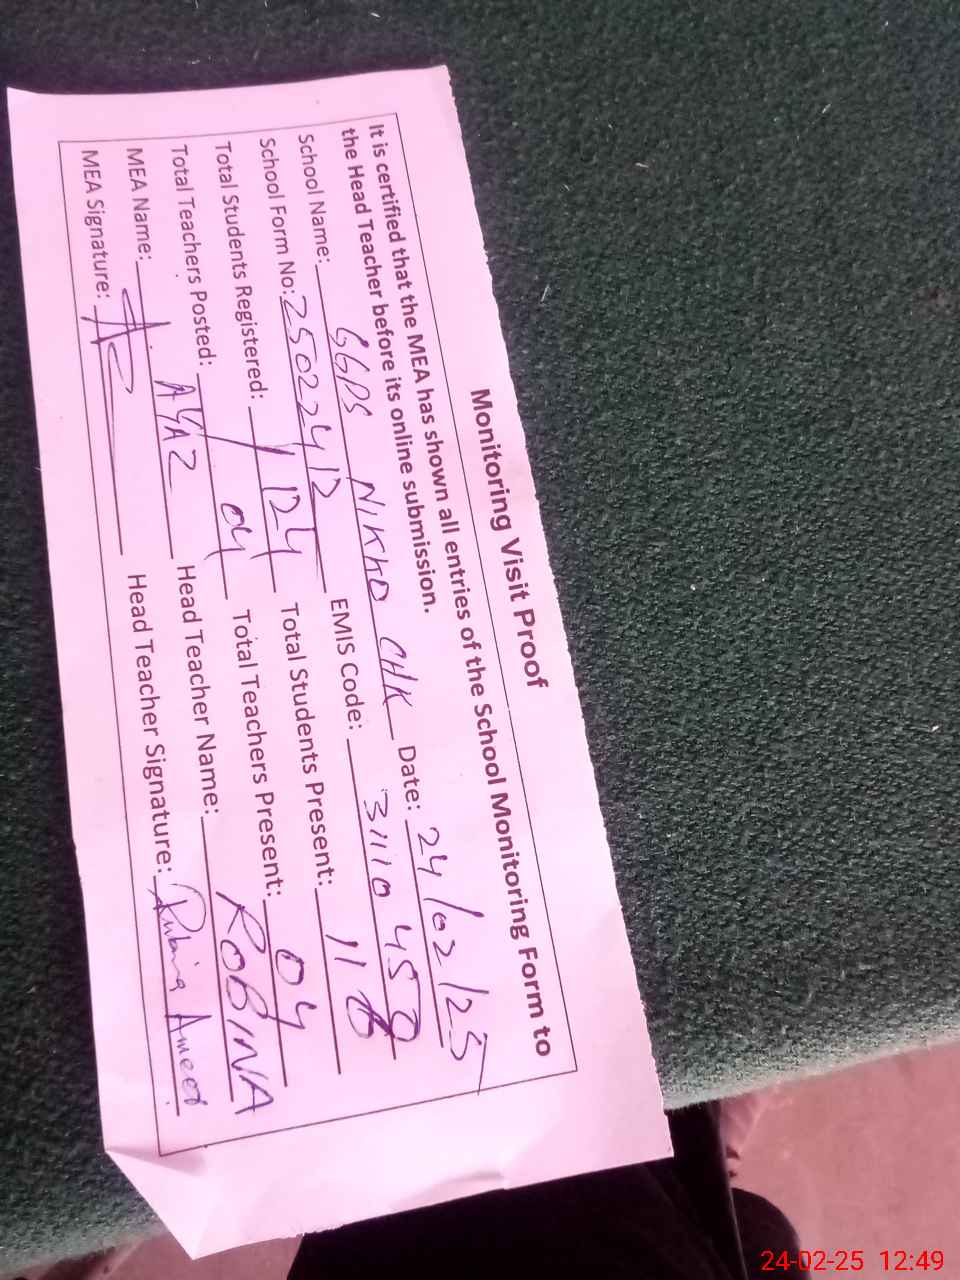 Monitoring Visit Proof
It is certified that the MEA has shown all entries of the School Monitoring Form to
the Head Teacher before its online submission.
School Name: GGPS NIKKO CHK Date: 24/02/25
School Form No: 25022412 EMIS Code: 31110450
Total Students Registered: 124 Total Students Present: 118
Total Teachers Posted: 04 Total Teachers Present: 04
MEA Name: AYAZ Head Teacher Name: ROBINA
MEA Signature: Head Teacher Signature: Rubina Ameer
24-02-25 12:49